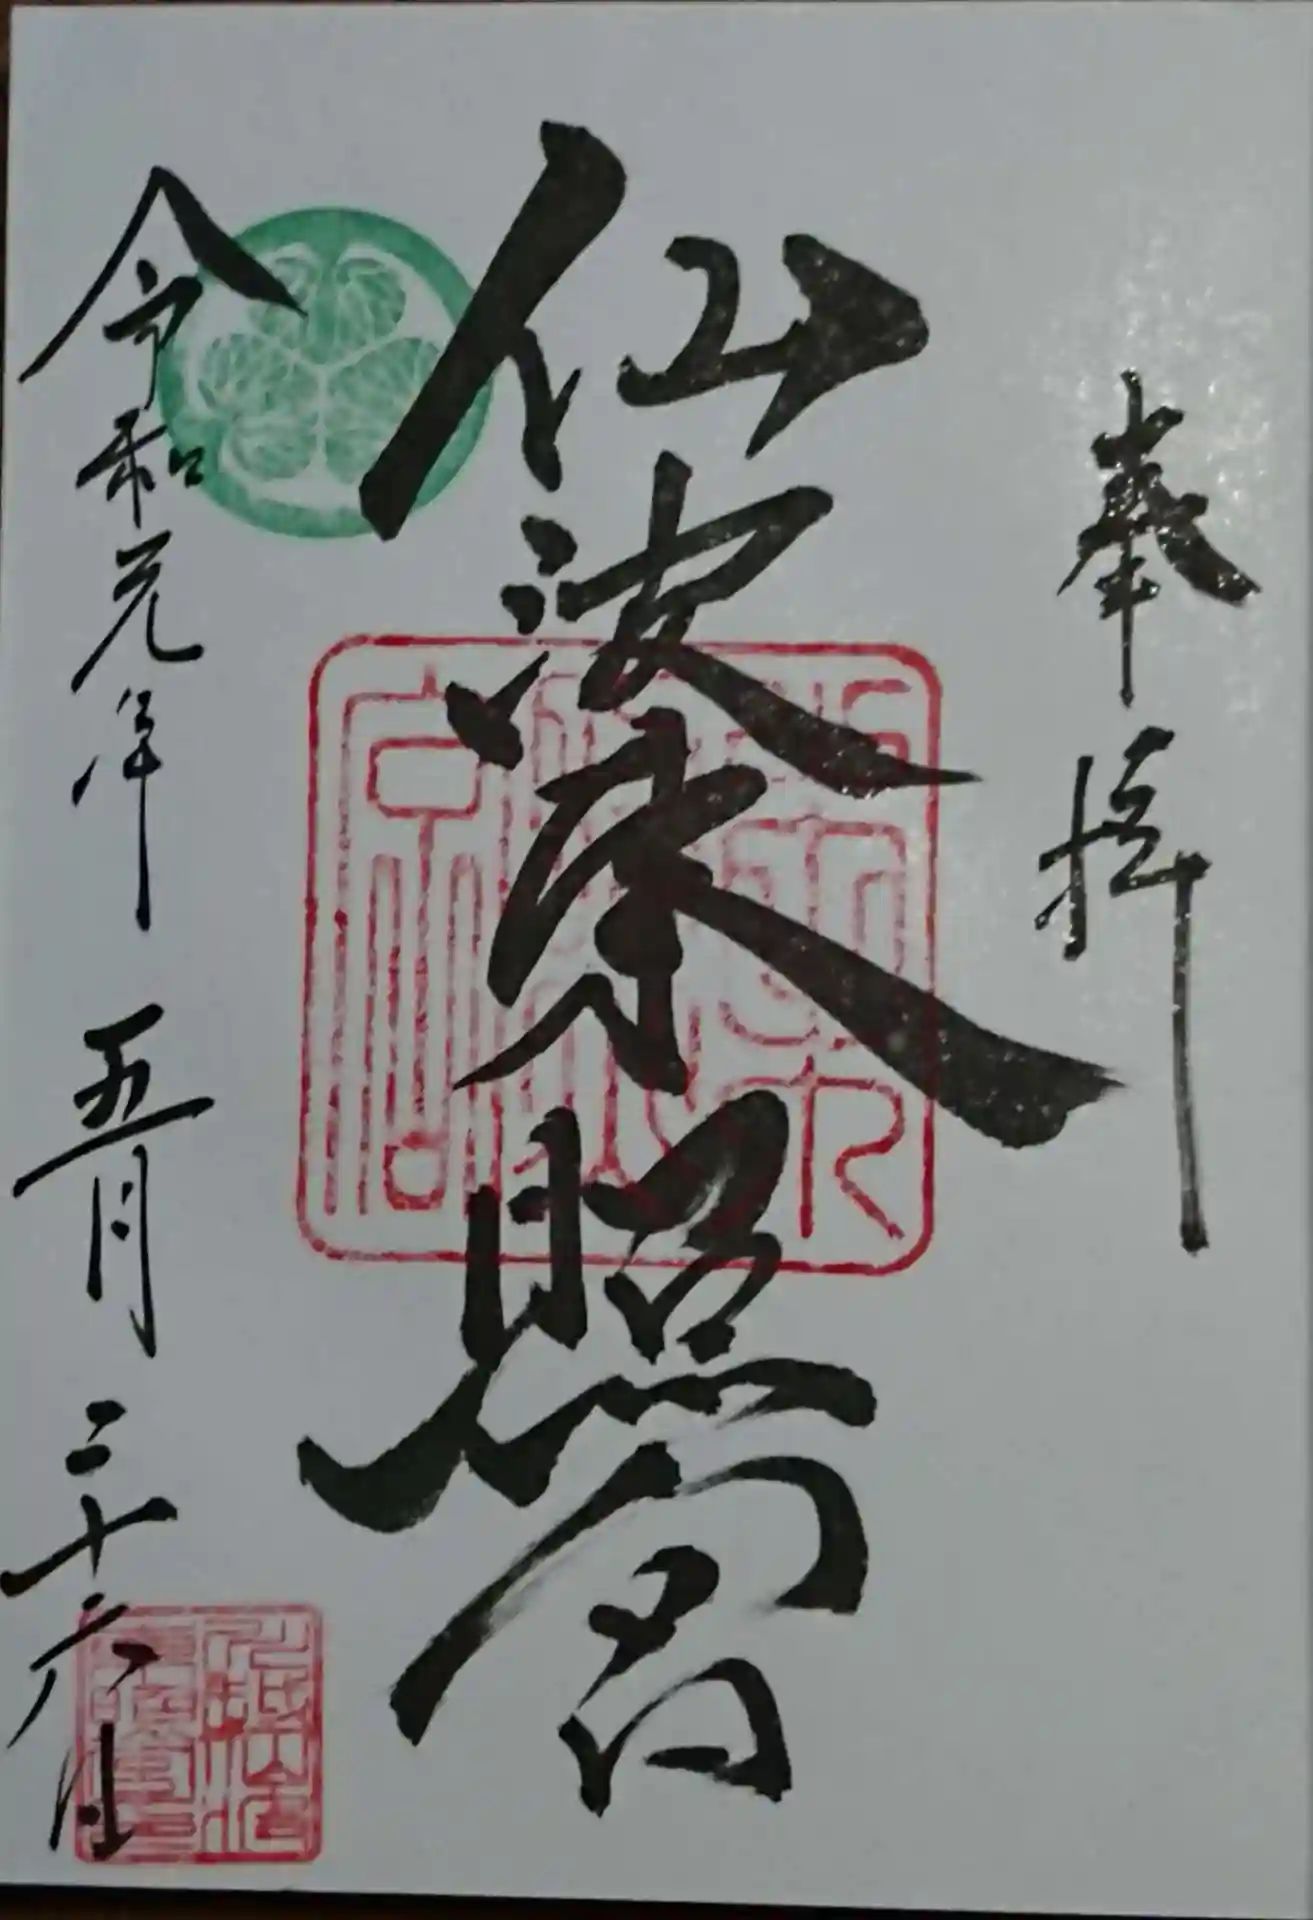 奉拝
仙波東照宮
令和元年 五月 二十六日